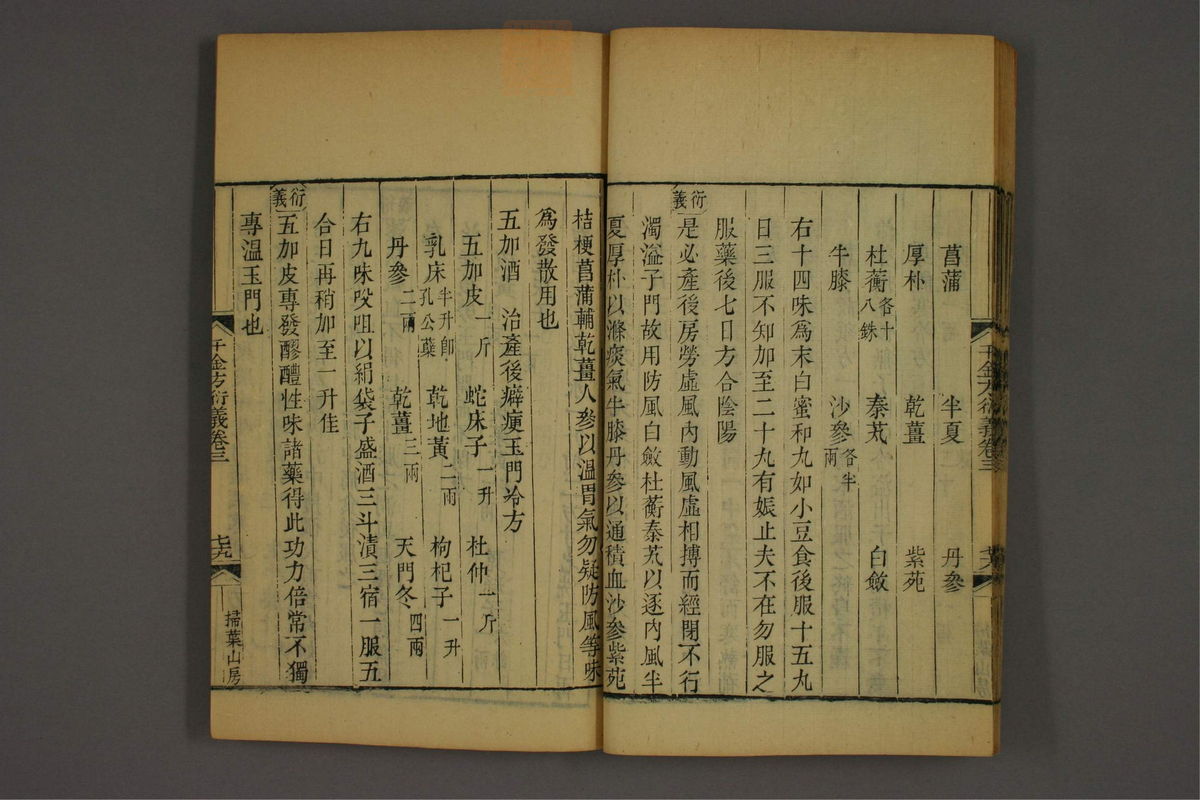 菖蒲 半夏 丹參
厚朴 乾薑 紫菀
杜蘅各十八銖 秦艽 白斂
牛膝 沙參各半兩
右十四味爲末白蜜和丸如小豆食後服十五丸
日三服不知加至二十丸有娠止夫不在勿服之
服藥後七日方合陰陽
衍義
是必產後房勞虛風內動風虛相搏而經閉不行
濁溢子門故用防風白斂杜蘅秦艽以逐內風半
夏厚朴以滌痰氣牛膝丹參以通積血沙參紫菀
桔梗菖蒲輔乾薑人參以溫胃氣勿疑防風等味
爲發散用也
五加酒 治產後癖瘦玉門冷方
五加皮一斤 蛇床子一升 杜仲一斤
乳床半升卽孔公蘖 乾地黃二兩 枸杞子一升
丹參二兩 乾薑三兩 天門冬四兩
右九味㕮咀以絹袋子盛酒三斗漬三宿一服五
合日再稍加至一升佳
衍義
五加皮專發醪醴性味諸藥得此功力倍常不獨
專溫玉門也
千金方衍義卷三
掃葉山房